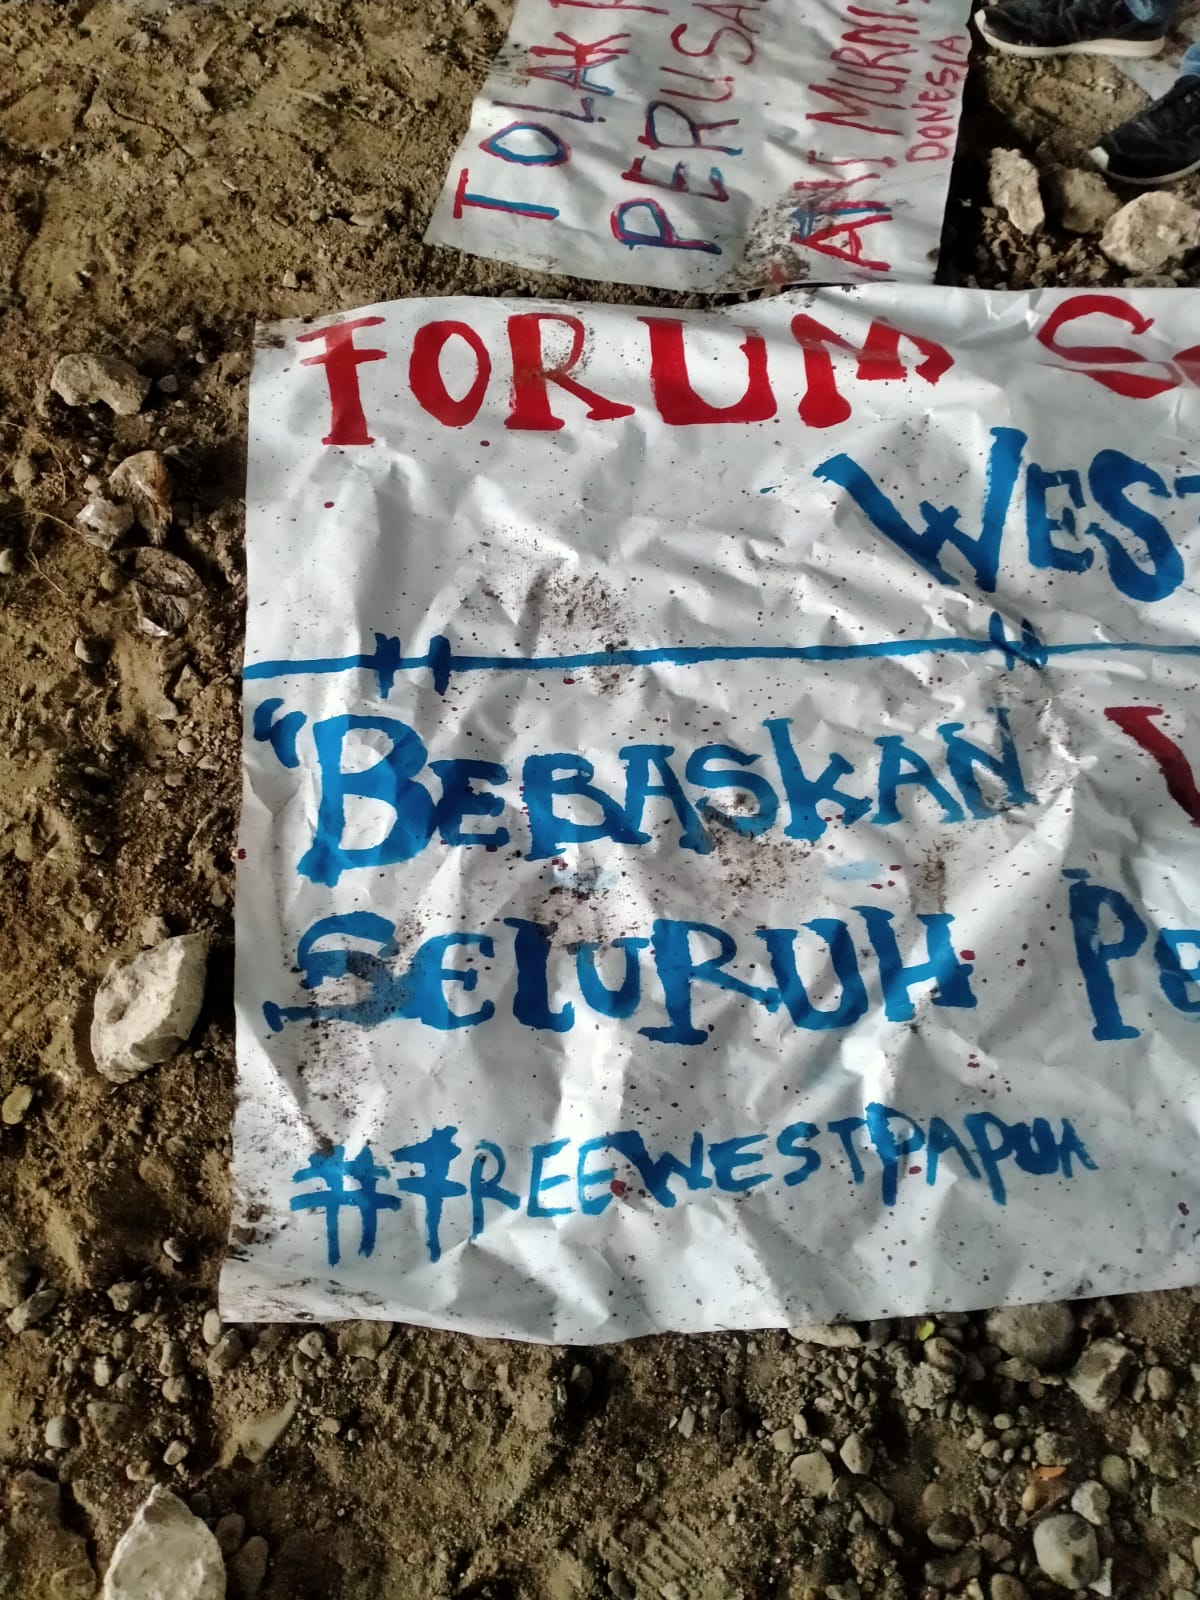 TOLAK
PERUSA
ANI MURNI
DONESIA
FORUM S
WEST
"BEBASKAN
SELURUH PE
#FREEWESTPAPUA